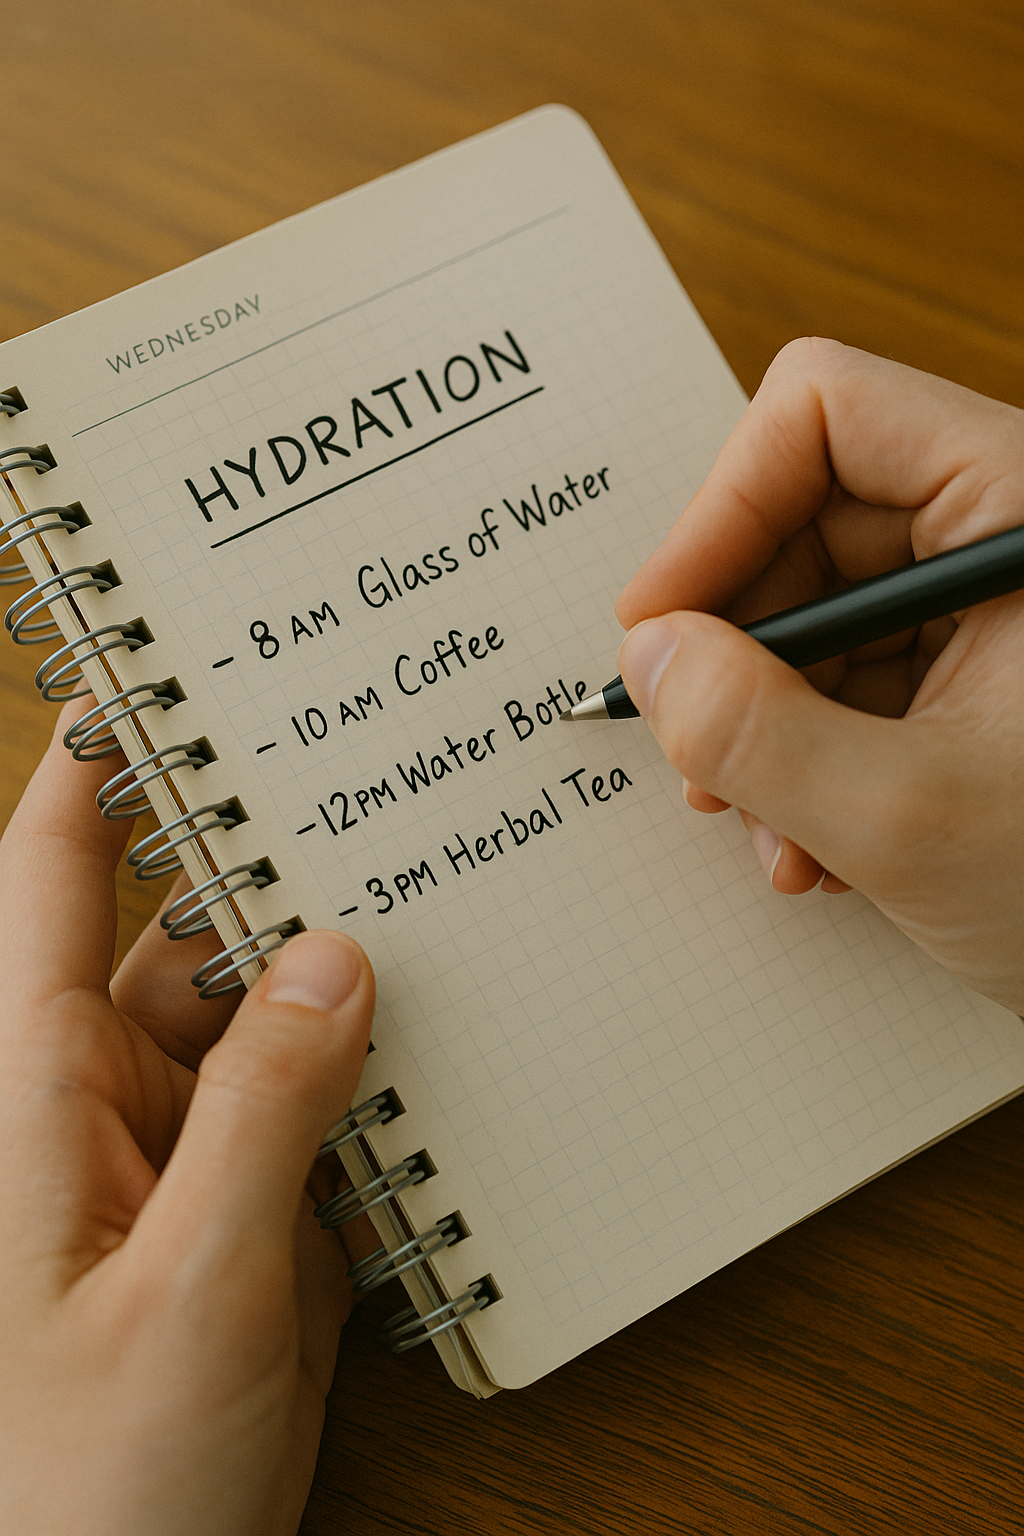 WEDNESDAY
HYDRATION
- 8 AM Glass of Water
- 10 AM Coffee
- 12PM Water Botle
- 3PM Herbal Tea